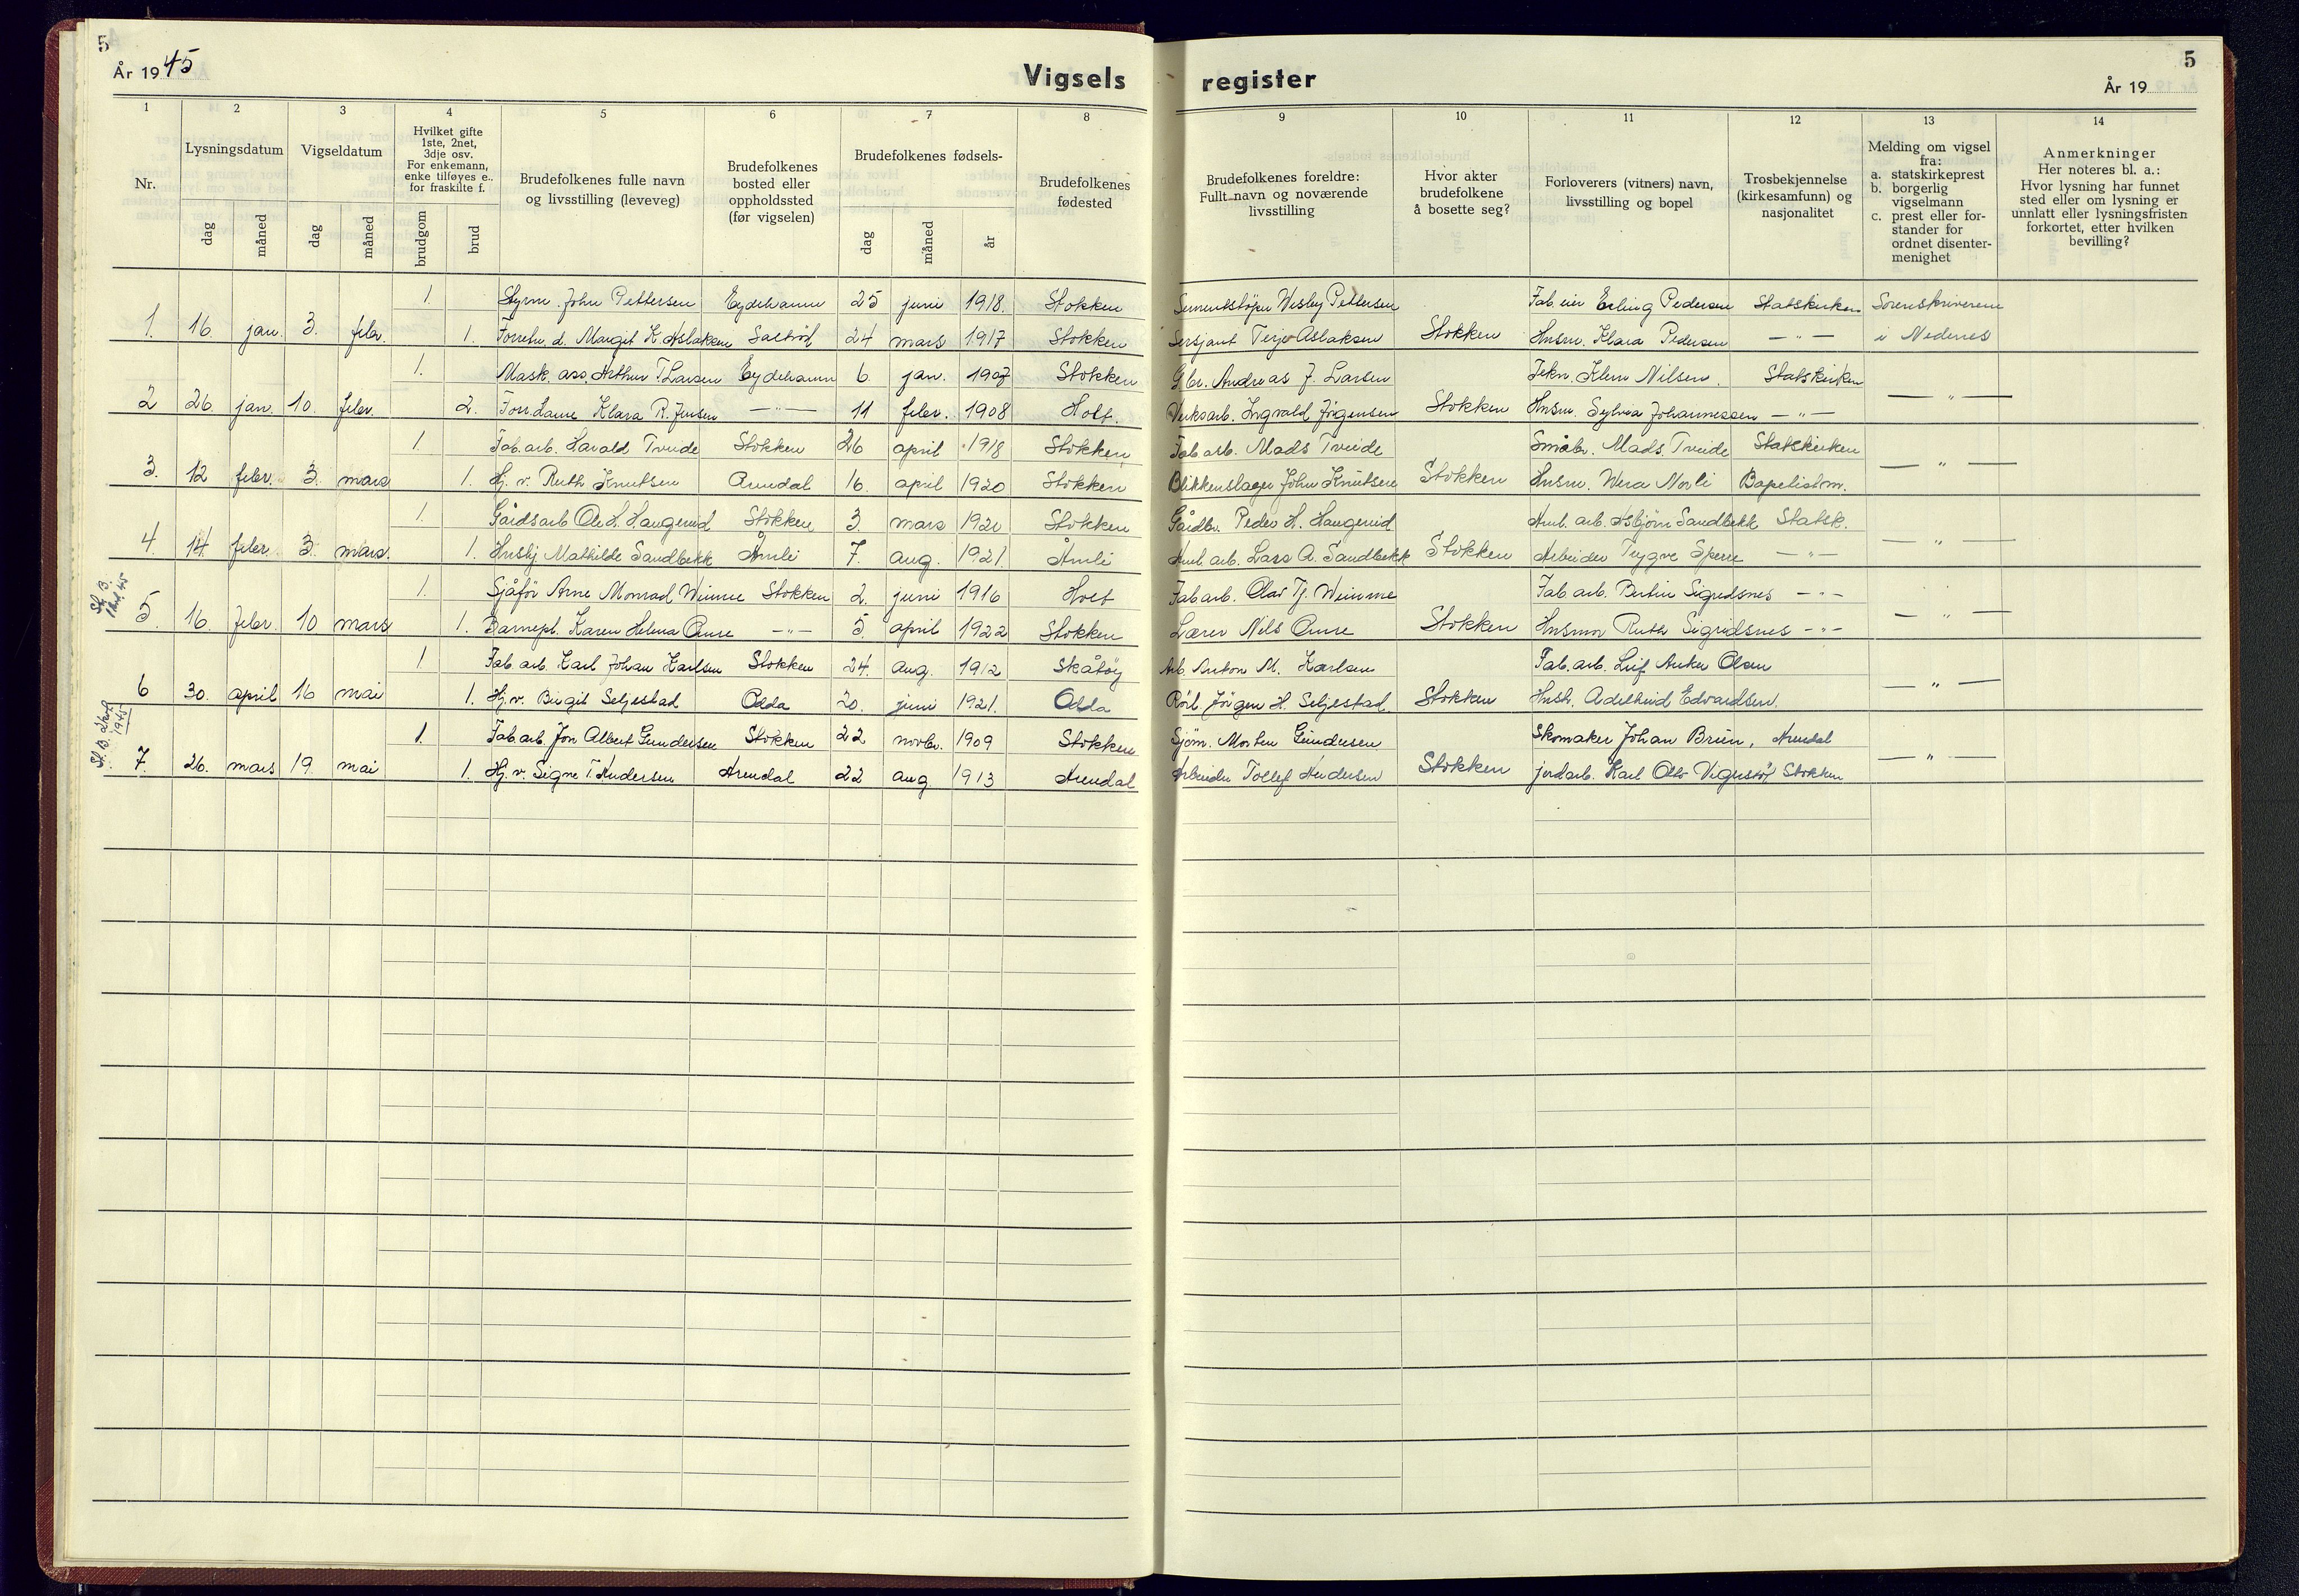 5
År 1945
Vigsels
register
5
År 19
1 2 3 4 5 6 7 8 9 10 11 12 13 14
Nr.
Lysningsdatum
dag måned
Vigseldatum
dag måned
Hvilket gifte
1ste, 2net,
3dje osv.
For enkemann,
enke tilføyes e.,
for fraskilte f.
brudgom brud
Brudefolkenes fulle navn
og livsstilling (leveveg)
Brudefolkenes
bosted eller
oppholdssted
(før vigselen)
Brudefolkenes fødsels-
dag måned år
Brudefolkenes
fødested
Brudefolkenes foreldre:
Fullt navn og noværende
livsstilling
Hvor akter
brudefolkene
å bosette seg?
Forloverers (vitners) navn,
livsstilling og bopel
Trosbekjennelse
(kirkesamfunn) og
nasjonalitet
Melding om vigsel
fra:
a. statskirkeprest
b. borgerlig
vigselmann
c. prest eller for-
stander for
ordnet disenter-
menighet
Anmerkninger
Her noteres bl. a.:
Hvor lysning har funnet
sted eller om lysning er
unnlatt eller lysningsfristen
forkortet, etter hvilken
bevilling?
1. Styrm. John Pettersen Eydehavn 25 juni 1918. Stokken Sementstøper Wesley Pettersen Fab. eier Erling Pedersen Statskirken Sorenskriveren
1. 16. jan. 3. febr. 1. Forretn. d. Margit K. Aslaksen Saltrød 24 mars 1917 Stokken Sersjant Terje Aslaksen Stokken Husm. Klara Pedersen — " — i Nedenes
1. Mask. ass. Arthur T. Larsen Eydehavn 6. jan. 1907 Stokken Gbr. Andreas J. Larsen Tekn. Klem Nilsen. Statskirken
2 26. jan. 10. febr. 2. Forr. dame Klara R. Jensen — " — 11 febr. 1908 Holt. Verksarb. Ingvald Jörgensen Stokken Husm. Sylvia Johannessen — " — — " —
1. Fab. arb. Harald Tveide Stokken 26 april 1918 Stokken Fab. arb. Mads Tveide Småbr. Mads Tveide Statskirken
3. 12 febr. 3. mars 1. Hj. v. Ruth Knutsen Arendal 16. april 1920 Stokken Blikkenslager John Knutsen Stokken Husm. Wera Norli Baptistm. — " —
1. Gårdsarb Ole H. Haugenid Stokken 3. mars 1920 Stokken Gårdbr. Peder H. Haugenid Anl. arb. Asbjörn Sandbekk Statsk.
4. 14. febr. 3. mars. 1. Hushj. Mathilde Sandbekk Åmli 7. aug. 1921. Åmli Anl. arb. Lars A. Sandbekk Stokken Arbeider Trygve Sperre — " — — " —
1. Sjåför Arne Monrad Wimme Stokken 2. juni 1916 Holt Fab arb. Olav Tj. Wimme Fab arb. Bertin Sigridsnes — " —
5. 16. febr. 10 mars 1. Barnepl. Karen Helena Omre — " — 5. april 1922 Stokken Lærer Nils Omre Stokken Husmor Ruth Sigridsnes — " — — " —
1. Fab. arb. Karl Johan Karlsen Stokken 24. aug. 1912 Skåtöy Arb. Anton M. Karlsen Fab. arb. Leif Anker Olsen
6 30. april 16 mai 1. Hj. v. Birgit Seljestad Odda 20. juni 1921. Odda Rörl. Jörgen H. Seljestad. Stokken Hush. Adelheid Edvardsen. — " —
St. B. 2kvl 1945
1. Fab. arb. Jon Albert Gundersen Stokken 22 novbr. 1909 Stokken Sjöm. Morten Gundersen Skomaker Johan Brün, Arendal
7. 26. mars 19. mai 1. Hj. v. Signe T. Andersen Arendal 22 aug. 1913 Arendal Arbeider Tollef Andersen Stokken jordarb. Karl Otto Stokken — " —